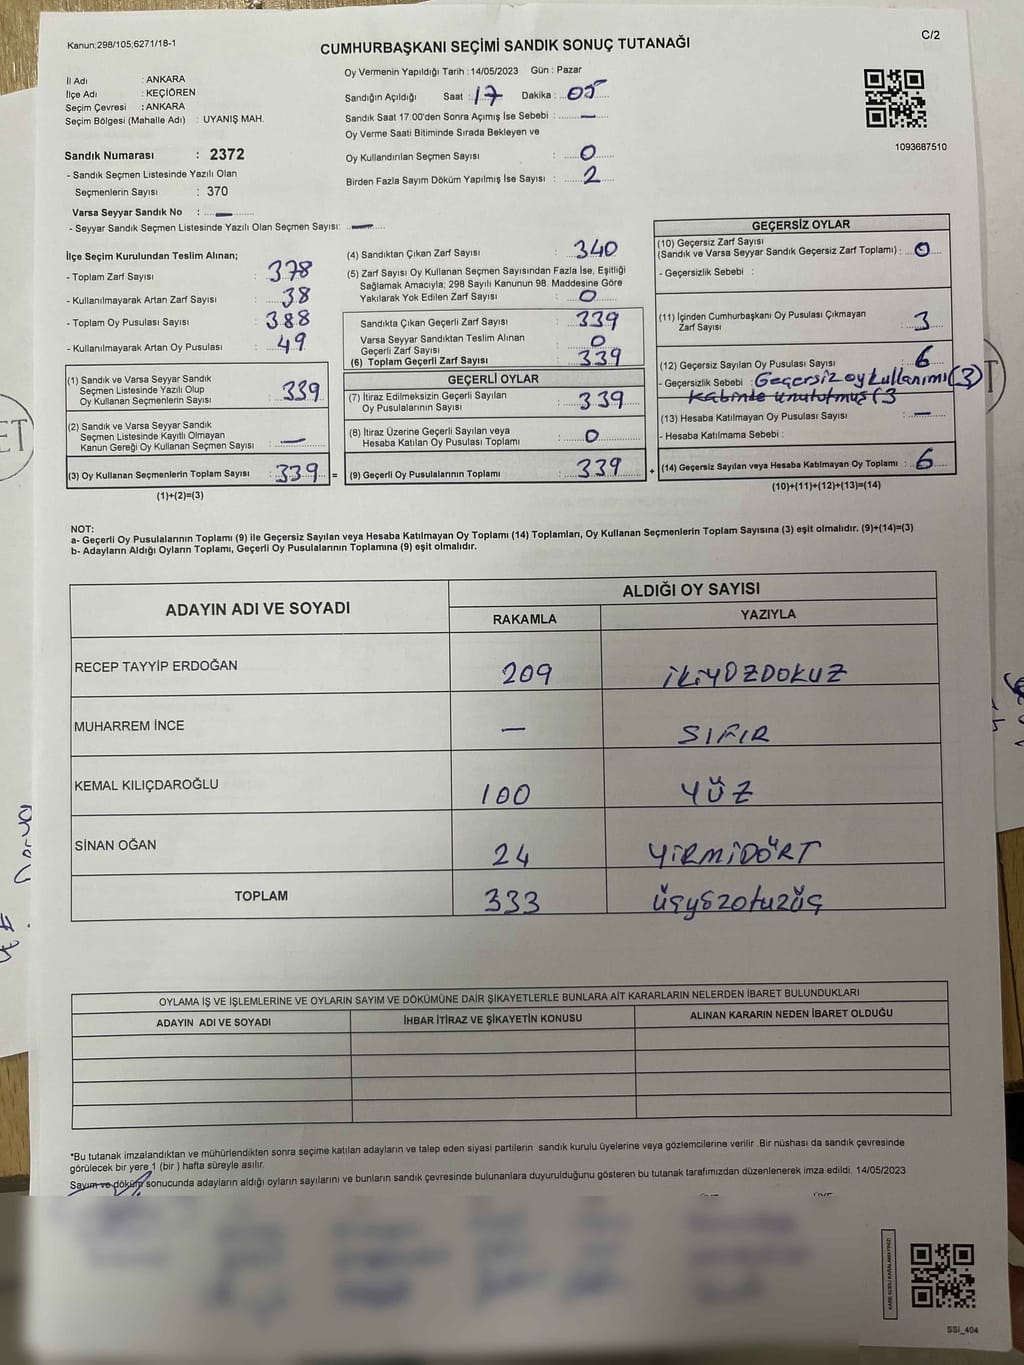 Kanun;298/105;6271/18-1
C/2
CUMHURBAŞKANI SEÇİMİ SANDIK SONUÇ TUTANAĞI
İl Adı : ANKARA
İlçe Adı : KEÇİÖREN
Seçim Çevresi : ANKARA
Seçim Bölgesi (Mahalle Adı) : UYANIŞ MAH.
Sandık Numarası : 2372
- Sandık Seçmen Listesinde Yazılı Olan
Seçmenlerin Sayısı : 370
Varsa Seyyar Sandık No : —
- Seyyar Sandık Seçmen Listesinde Yazılı Olan Seçmen Sayısı: —
Oy Vermenin Yapıldığı Tarih : 14/05/2023 Gün : Pazar
Sandığın Açıldığı Saat : 17 Dakika : 05
Sandık Saat 17.00'den Sonra Açımış İse Sebebi : —
Oy Verme Saati Bitiminde Sırada Bekleyen ve
Oy Kullandırılan Seçmen Sayısı : 0
Birden Fazla Sayım Döküm Yapılmış İse Sayısı : 2
1093687510
İlçe Seçim Kurulundan Teslim Alınan;
- Toplam Zarf Sayısı : 378
- Kullanılmayarak Artan Zarf Sayısı : 38
- Toplam Oy Pusulası Sayısı : 388
- Kullanılmayarak Artan Oy Pusulası : 49
(1) Sandık ve Varsa Seyyar Sandık
Seçmen Listesinde Yazılı Olup
Oy Kullanan Seçmenlerin Sayısı : 339
(2) Sandık ve Varsa Seyyar Sandık
Seçmen Listesinde Kayıtlı Olmayan
Kanun Gereği Oy Kullanan Seçmen Sayısı : —
(3) Oy Kullanan Seçmenlerin Toplam Sayısı : 339 =
(1)+(2)=(3)
(4) Sandıktan Çıkan Zarf Sayısı : 340
(5) Zarf Sayısı Oy Kullanan Seçmen Sayısından Fazla İse, Eşitliği
Sağlamak Amacıyla; 298 Sayılı Kanunun 98. Maddesine Göre
Yakılarak Yok Edilen Zarf Sayısı : 0
Sandıkta Çıkan Geçerli Zarf Sayısı : 339
Varsa Seyyar Sandıktan Teslim Alınan
Geçerli Zarf Sayısı : 0
(6) Toplam Geçerli Zarf Sayısı : 339
GEÇERLİ OYLAR
(7) İtiraz Edilmeksizin Geçerli Sayılan
Oy Pusulalarının Sayısı : 339
(8) İtiraz Üzerine Geçerli Sayılan veya
Hesaba Katılan Oy Pusulası Toplamı : 0
(9) Geçerli Oy Pusulalarının Toplamı : 339 +
GEÇERSİZ OYLAR
(10) Geçersiz Zarf Sayısı
(Sandık ve Varsa Seyyar Sandık Geçersiz Zarf Toplamı) : 0
- Geçersizlik Sebebi :
(11) İçinden Cumhurbaşkanı Oy Pusulası Çıkmayan
Zarf Sayısı : 3
(12) Geçersiz Sayılan Oy Pusulası Sayısı : 6
- Geçersizlik Sebebi : Geçersiz oy kullanımı (3)
Kabinde unutulmuş (3
(13) Hesaba Katılmayan Oy Pusulası Sayısı : —
- Hesaba Katılmama Sebebi :
(14) Geçersiz Sayılan veya Hesaba Katılmayan Oy Toplamı : 6
(10)+(11)+(12)+(13)=(14)
NOT:
a- Geçerli Oy Pusulalarının Toplamı (9) ile Geçersiz Sayılan veya Hesaba Katılmayan Oy Toplamı (14) Toplamları, Oy Kullanan Seçmenlerin Toplam Sayısına (3) eşit olmalıdır. (9)+(14)=(3)
b- Adayların Aldığı Oyların Toplamı, Geçerli Oy Pusulalarının Toplamına (9) eşit olmalıdır.
ADAYIN ADI VE SOYADI
ALDIĞI OY SAYISI
RAKAMLA YAZIYLA
RECEP TAYYİP ERDOĞAN 209 İKİYÜZDOKUZ
MUHARREM İNCE — SIFIR
KEMAL KILIÇDAROĞLU 100 YÜZ
SİNAN OĞAN 24 YİRMİDÖRT
TOPLAM 333 üçyüzotuzüç
OYLAMA İŞ VE İŞLEMLERİNE VE OYLARIN SAYIM VE DÖKÜMÜNE DAİR ŞİKAYETLERLE BUNLARA AİT KARARLARIN NELERDEN İBARET BULUNDUKLARI
ADAYIN ADI VE SOYADI İHBAR İTİRAZ VE ŞİKAYETİN KONUSU ALINAN KARARIN NEDEN İBARET OLDUĞU
*Bu tutanak imzalandıktan ve mühürlendikten sonra seçime katılan adayların ve talep eden siyasi partilerin sandık kurulu üyelerine veya gözlemcilerine verilir .Bir nüshası da sandık çevresinde
görülecek bir yere 1 (bir ) hafta süreyle asılır.
Sayım ve döküm sonucunda adayların aldığı oyların sayılarını ve bunların sandık çevresinde bulunanlara duyurulduğunu gösteren bu tutanak tarafımızdan düzenlenerek imza edildi. 14/05/2023
SSİ_404